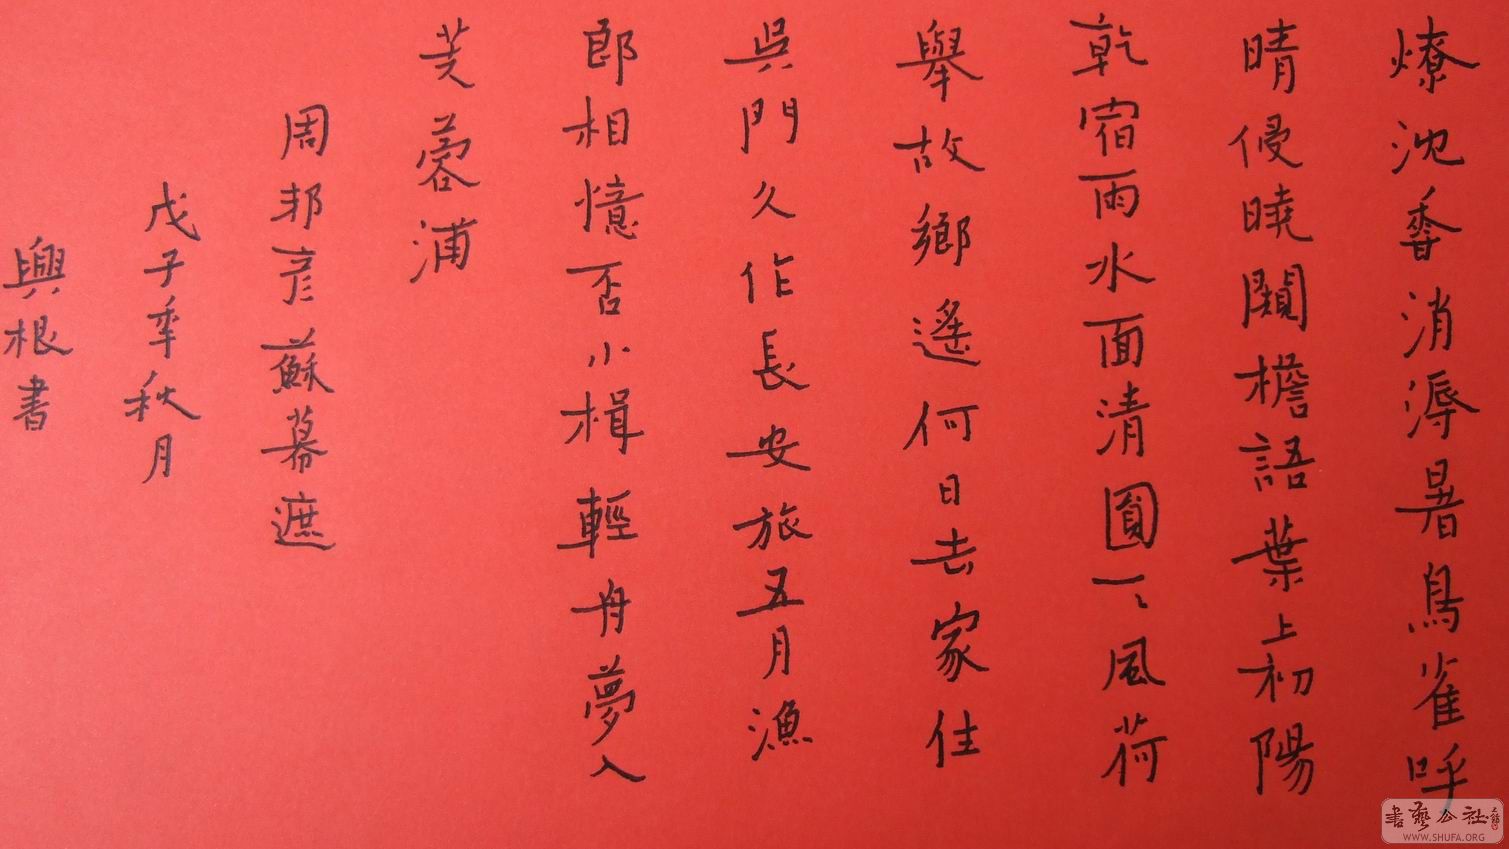 燎沈香消溽暑鳥雀呼
晴侵曉闚檐語葉上初陽
乾宿雨水面清圓一一風荷
舉故鄉遙何日去家住
吳門久作長安旅五月漁
郎相憶否小楫輕舟夢入
芙蓉浦
周邦彥蘇幕遮
戊子年秋月
興根書
書藝公社
WWW.SHUFA.ORG